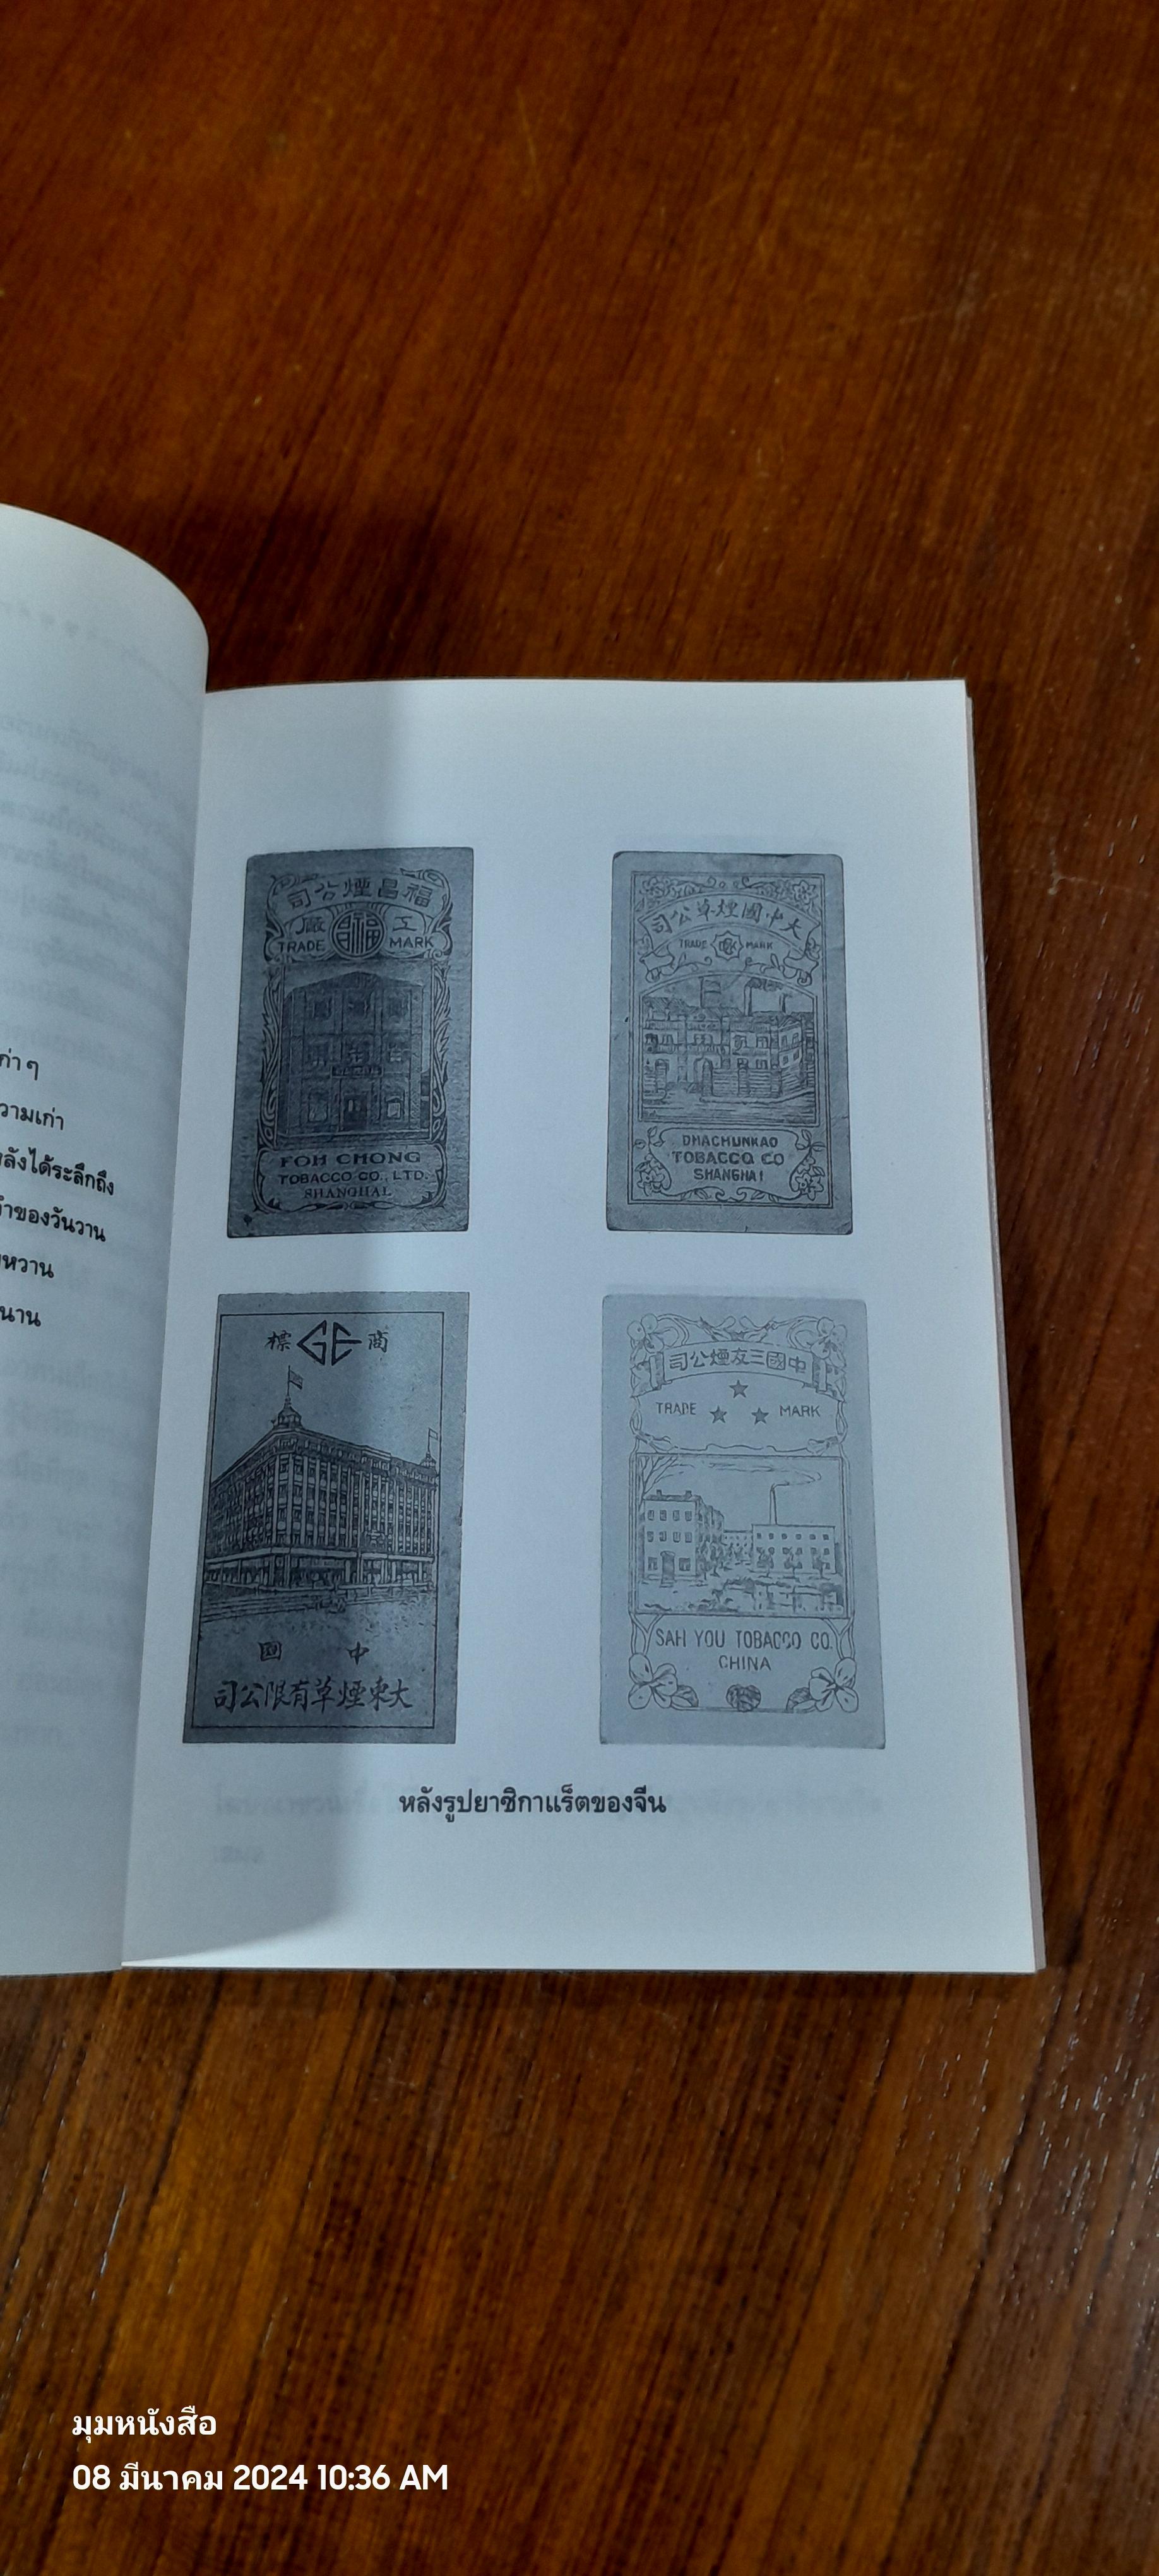 ก่า ๆ
วามเก่า
ลังได้ระลึกถึง
ำของวันวาน
หวาน
นาน
司公煙昌福
廠 工
TRADE MARK
FOH CHONG
TOBACCO CO., LTD.
SHANGHAI
司公草煙國中大
TRADE MARK
DHACHUNKAO
TOBACCO CO
SHANGHAI
標 GE 商
國 中
司公限有草煙東大
司公煙友三國中
TRADE MARK
SAH YOU TOBACCO CO.
CHINA
หลังรูปยาซิกาแร็ตของจีน
มุมหนังสือ
08 มีนาคม 2024 10:36 AM